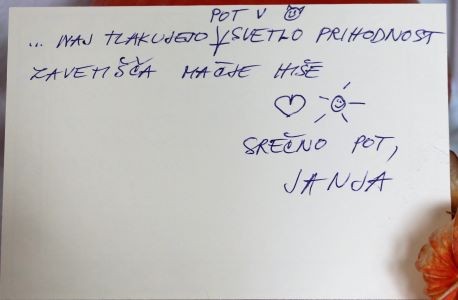 POT V
... NAJ TLAKUJEJO SVETLO PRIHODNOST
ZAVETIŠČA MAČJE HIŠE
SREČNO POT,
JANJA